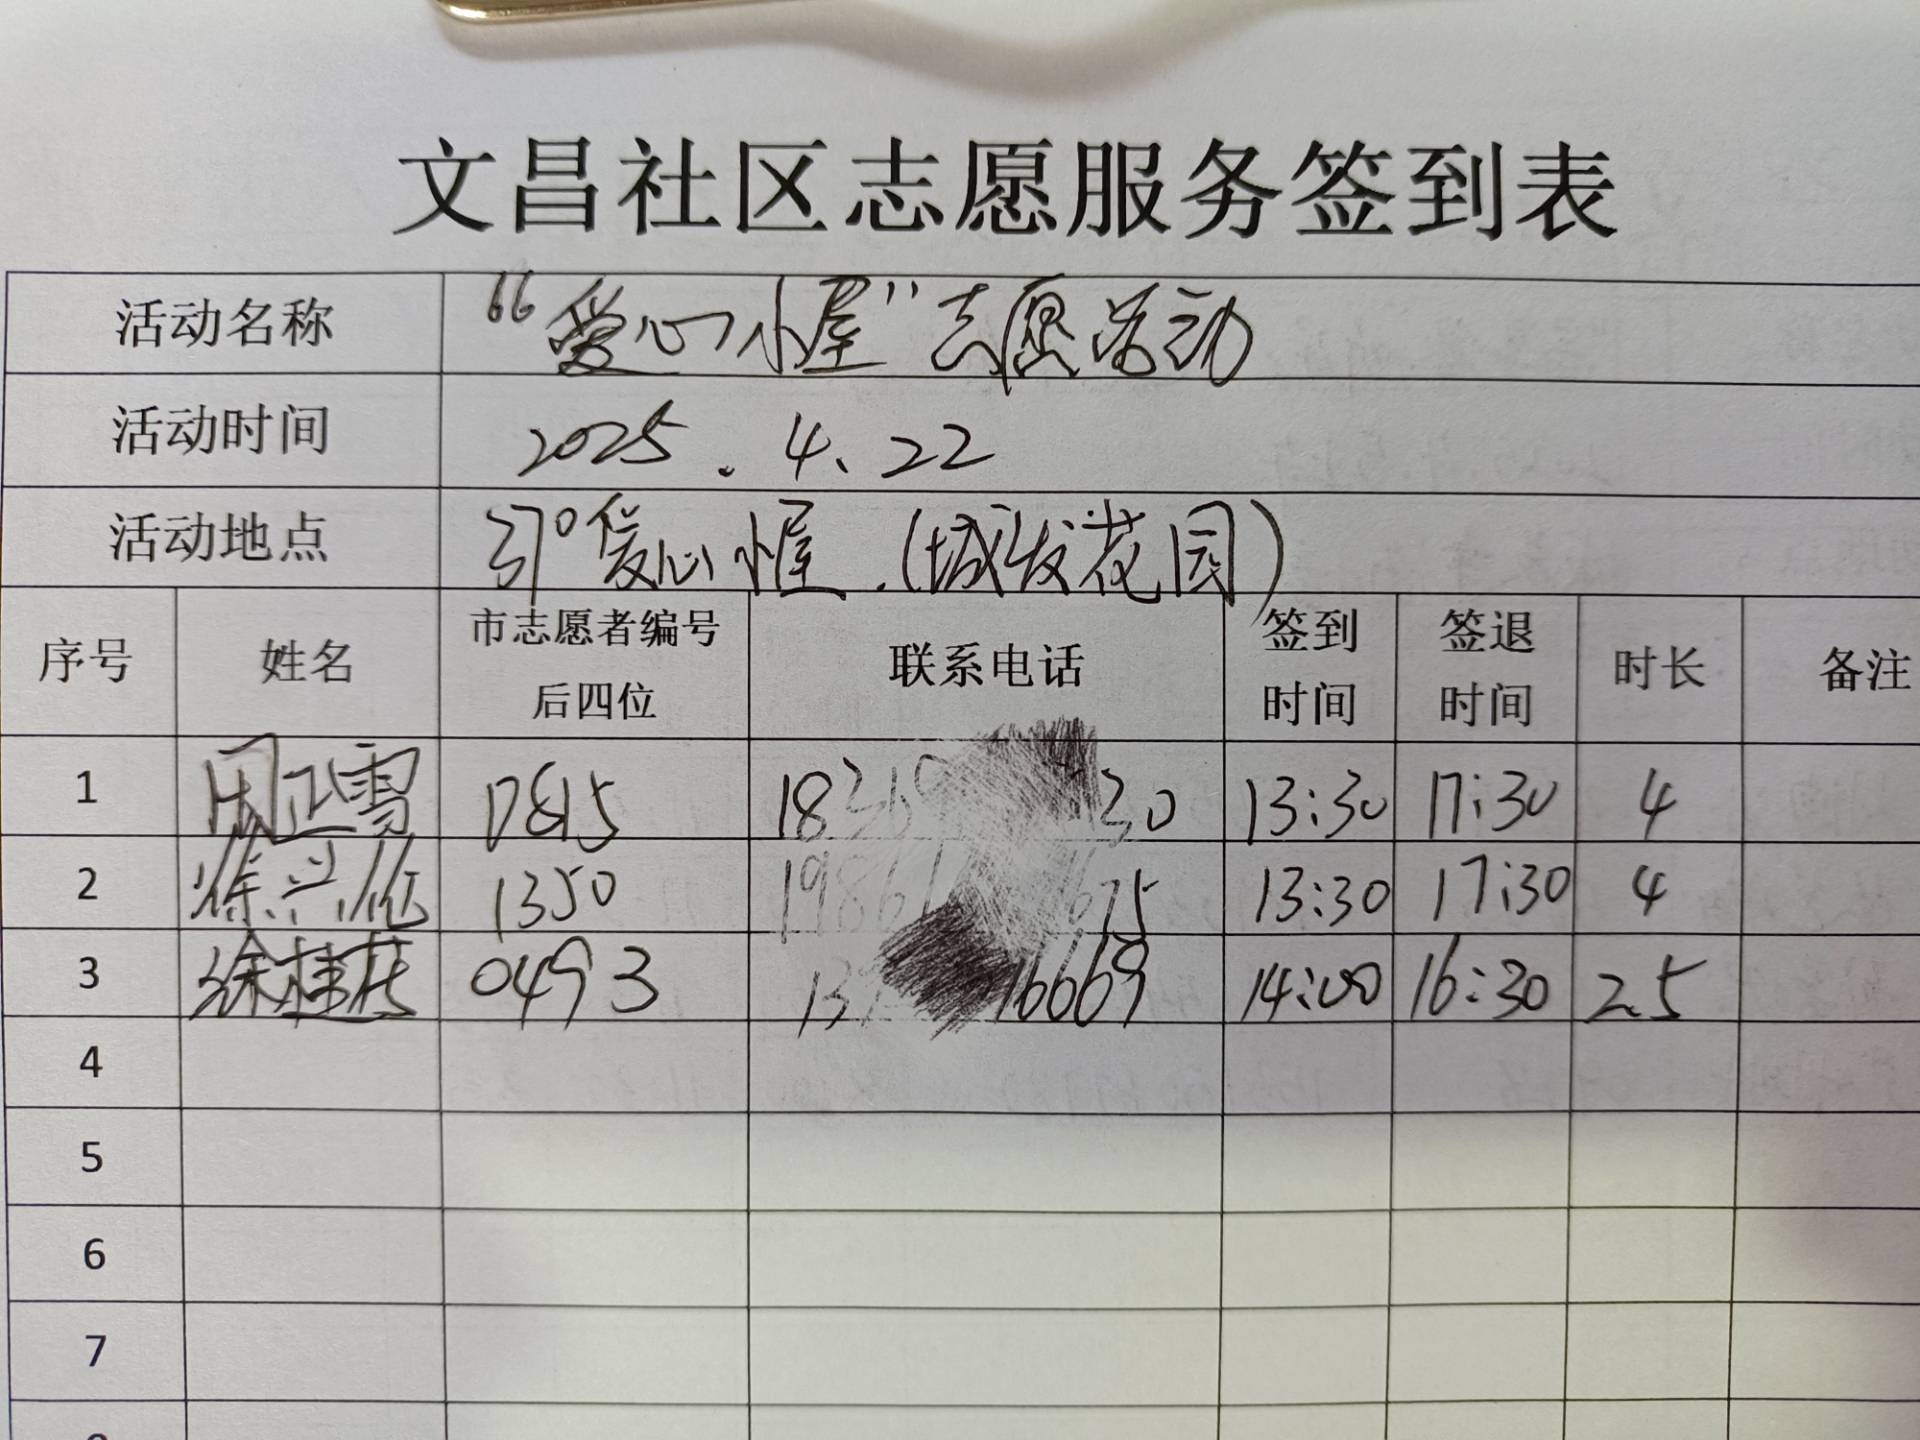 文昌社区志愿服务签到表
活动名称 “爱心小屋”志愿活动
活动时间 2025.4.22
活动地点 37°爱心小屋.(城发花园)
序号 姓名 市志愿者编号后四位 联系电话 签到时间 签退时间 时长 备注
1 周正雪 0815 18 30 13:30 17:30 4
2 徐兴 1350 1986 675 13:30 17:30 4
3 徐桂 0493 13 16669 14:00 16:30 2.5
4
5
6
7